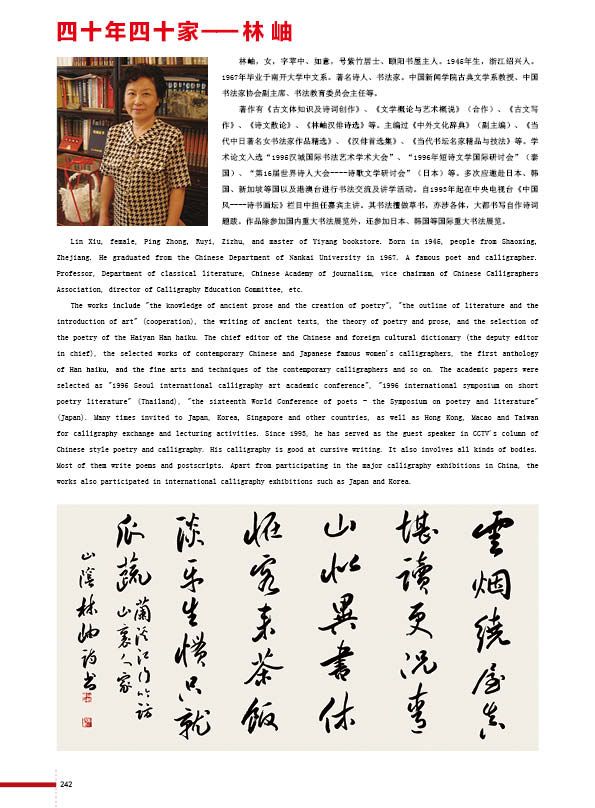 四十年四十家——林 岫
林岫，女，字苹中、如意，号紫竹居士、颐阳书屋主人。1945年生，浙江绍兴人。
1967年毕业于南开大学中文系。著名诗人、书法家。中国新闻学院古典文学系教授、中国
书法家协会副主席、书法教育委员会主任等。
著作有《古文体知识及诗词创作》、《文学概论与艺术概说》（合作）、《古文写
作》、《诗文散论》、《林岫汉俳诗选》等。主编过《中外文化辞典》（副主编）、《当
代中日著名女书法家作品精选》、《汉俳首选集》、《当代书坛名家精品与技法》等。学
术论文入选“1995汉城国际书法艺术学术大会”、“1996年短诗文学国际研讨会”（泰
国）、“第16届世界诗人大会----诗歌文学研讨会”（日本）等。多次应邀赴日本、韩
国、新加坡等国以及港澳台进行书法交流及讲学活动。自1993年起在中央电视台《中国
风----诗书画坛》栏目中担任嘉宾主讲。其书法擅做草书，亦涉各体，大都书写自作诗词
题跋。作品除参加国内重大书法展览外，还参加日本、韩国等国际重大书法展览。
Lin Xiu, female, Ping Zhong, Ruyi, Zizhu, and master of Yiyang bookstore. Born in 1945, people from Shaoxing,
Zhejiang. He graduated from the Chinese Department of Nankai University in 1967. A famous poet and calligrapher.
Professor, Department of classical literature, Chinese Academy of journalism, vice chairman of Chinese Calligraphers
Association, director of Calligraphy Education Committee, etc.
The works include "the knowledge of ancient prose and the creation of poetry", "the outline of literature and the
introduction of art" (cooperation), the writing of ancient texts, the theory of poetry and prose, and the selection of
the poetry of the Haiyan Han haiku. The chief editor of the Chinese and foreign cultural dictionary (the deputy editor
in chief), the selected works of contemporary Chinese and Japanese famous women's calligraphers, the first anthology
of Han haiku, and the fine arts and techniques of the contemporary calligraphers and so on. The academic papers were
selected as "1995 Seoul international calligraphy art academic conference", "1996 international symposium on short
poetry literature" (Thailand), "the sixteenth World Conference of poets - the Symposium on poetry and literature"
(Japan). Many times invited to Japan, Korea, Singapore and other countries, as well as Hong Kong, Macao and Taiwan
for calligraphy exchange and lecturing activities. Since 1993, he has served as the guest speaker in CCTV's column of
Chinese style poetry and calligraphy. His calligraphy is good at cursive writing. It also involves all kinds of bodies.
Most of them write poems and postscripts. Apart from participating in the major calligraphy exhibitions in China, the
works also participated in international calligraphy exhibitions such as Japan and Korea.
雲烟繞屋真
堪讀更況青
山似異書休
怪客来茶飯
淡平生慣只就
瓜蔬 蘭溪江行访
山裏人家
山陰林岫詩书
242